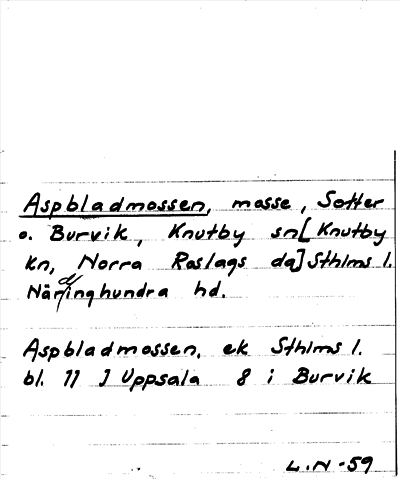 Aspbladmossen, mosse, Sotter
o. Burvik, Knutby sn[Knutby
kn, Norra Roslags da] Sthlms l.
Närdinghundra hd.
Aspbladmossen, ek Sthlms l.
bl. 11 J Uppsala 8 i Burvik
L.N -59